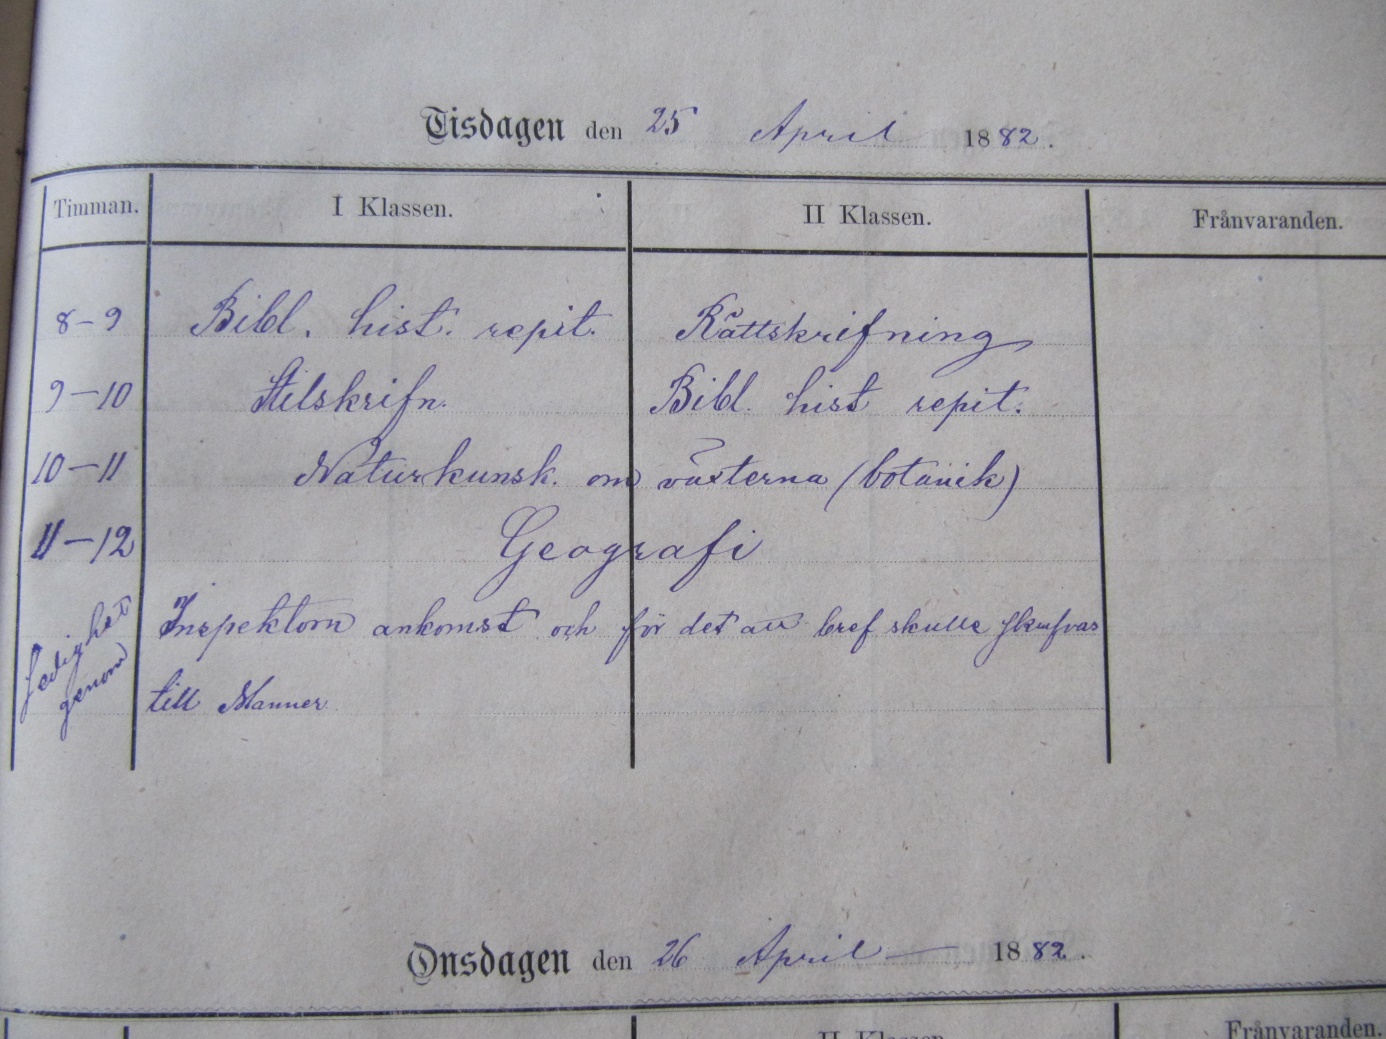 Tisdagen den 25 April 1882.
Timman. I Klassen. II Klassen. Frånvaranden.
8-9 Bibl. hist. repit. Rättskrifning
9-10 Stilskrifn. Bibl. hist repit.
10-11 Naturkunsk. om växterna (botanik)
11-12 Geografi
ledighet genom Inspektorn ankomst och för det att bref skulle skrifvas
till Manner
Onsdagen den 26 April 1882.
II Klassen Frånvaranden.